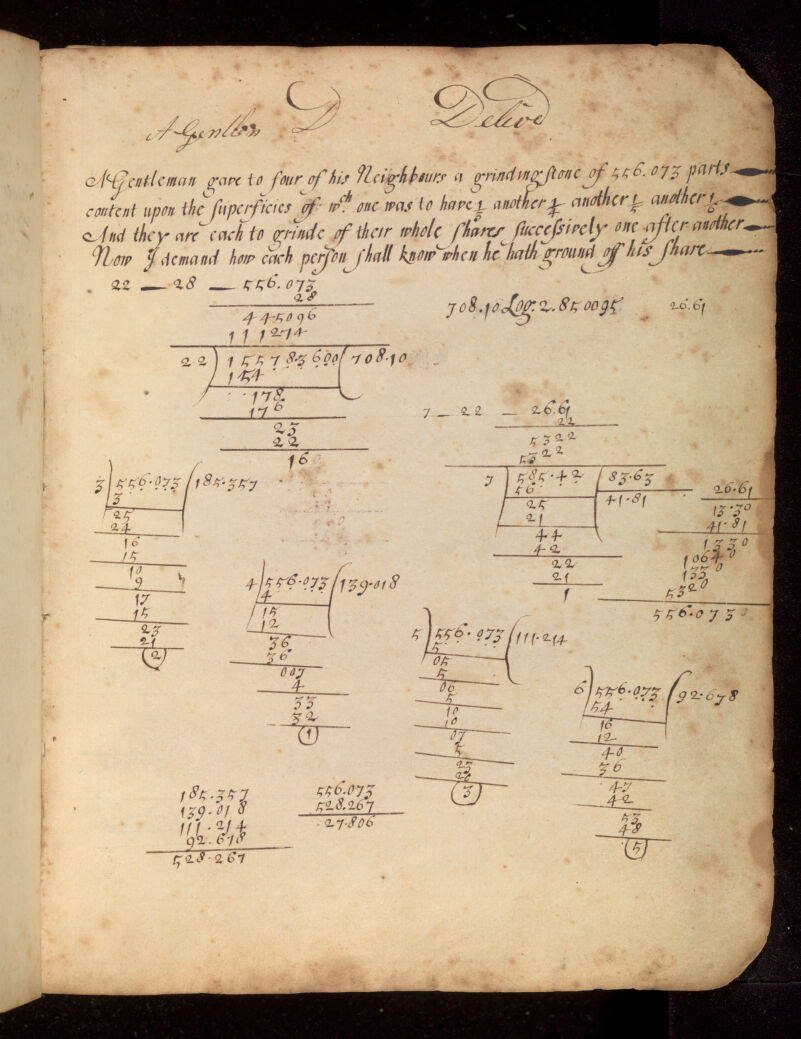 A Gentlem D Delive
A Gentleman gave to four of his Neighbours a grinding stone of 556.073 parts
content upon the superficies of wch. one was to have 1/3 another 1/4 another 1/5 another 1/6
And they are each to grinde of their whole shares successively one after another
Now I demand how each person shall know when he hath ground off his share
22 — 28 — 556.073
28
4 4 4 5 0 9 6
1 1 1 2 7 4
22 ) 1 5 5 7 8 3 6 0 0 ( 708.10
154
178
176
23
22
16
708.10 Log. 2.850095 26.61
7 — 22 — 26.61
22
5322
5322
7 585.42 ( 83.63
56 41.81
25
21
44
42
22
21
1
26.61
13.30
41.81
1330
10640
1330
5320
556.0730
3 556.073 ( 185.357
3
25
24
16
15
10
9
17
15
23
21
2
4 556.073 ( 139.018
4
15
12
36
36
007
4
33
32
1
5 ) 556.073 ( 111.214
5
05
5
06
5
10
10
07
5
23
20
3
6 556.073 ( 92.678
54
16
12
40
36
47
42
53
48
5
185.357
139.018
111.214
92.678
528.267
556.073
528.267
27.806